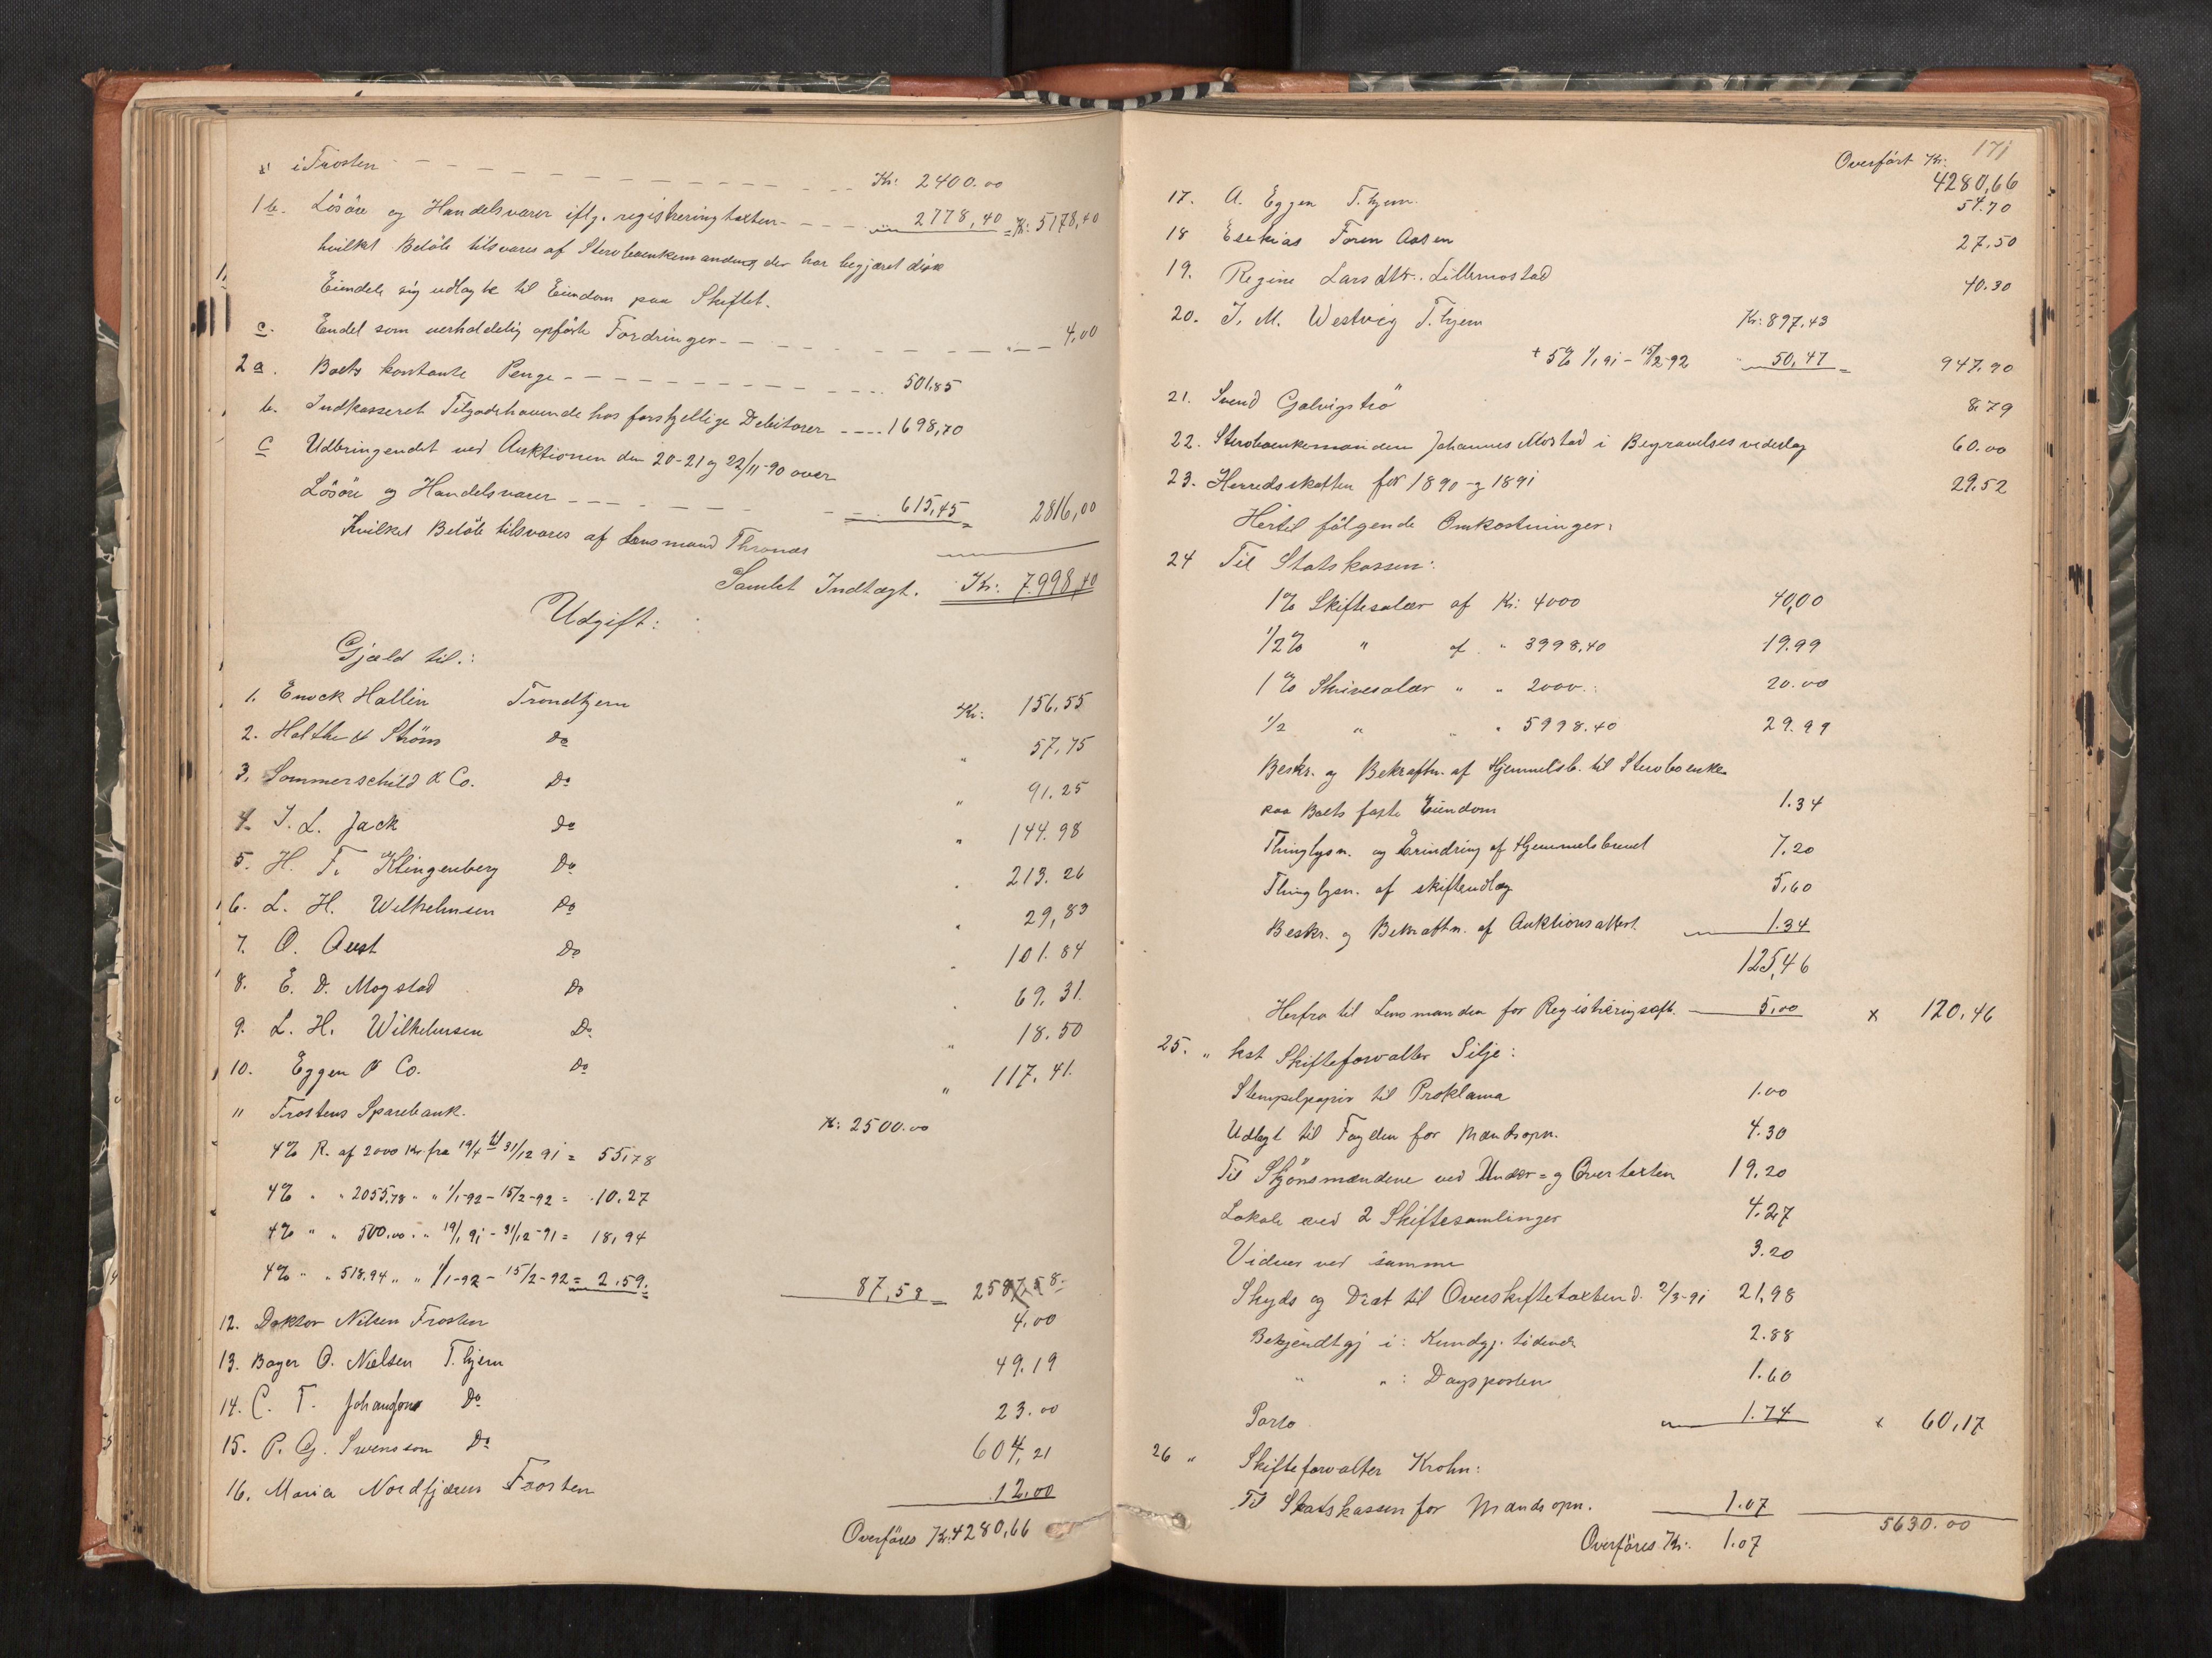 i Frosten Kr: 2400.00
1 b. Lösöre og Handelsvarer iflg. registreringtaxten 2778,40 = Kr: 5178,40
hvilket Belöb tilsvares af Stervboenkemanden, der har begjæret disse
Eiendele sig udlagte til Eiendom paa Skiftet.
c. Endel som uerholdelig opförte Fordringer 4,00
2 a. Boets kontante Penge 501.85
b. Indkasseret Tilgodehavende hos forskjellige Debitorer 1698,70
c Udbringendet ved Auktionen den 20-21 og 22/11-90 over
Lösöre og Handelsvarer 615,45 = 2816,00
Hvilket Belöb tilsvares af Lensmand Thronæs
Samlet Indtægt. Kr: 7.998,40
Udgift:
Gjæld til:
1. Enock Hallin Trondhjem Kr: 156.55
2. Holthe & Ström Do " 57.75
3. Sommerschild & Co. Do " 91.25
4. J. L. Jack Do " 144.98
5. H. F. Klingenberg Do " 213.26
6. L. H. Wilhelmsen Do " 29,83
7. O. Aust Do " 101.84
8. E. D. Mogstad Do " 69.31.
9. L. H. Wilhelmsen Do " 18.50
10. Eggen & Co. Do " 117.41.
11 Frostens Sparebank. Kr: 2500.00
4% R. af 2000 Kr. fra 19/4 til 31/12 91 = 55,78
4% " " 2055,78 " " 1/1-92 - 15/2-92 = 10.27
4% " " 500,00 " 19/1 91 - 31/12-91 = 18,94
4% " " 518.94 " " 1/1-92 - 15/2-92 = 2.59.
87,58 = 2587,58
12. Doktor Nilsen Frosten 4.00
13. Bager O. Nielsen T.hjem 49.19
14. C. T. Johansons Do 23.00
15. P. G. Svensson Do 604,21
16. Maria Nordfjæren Frosten 12.00
Overföres Kr. 4280,66
171
Overfört Kr. 4280,66
17. A. Eggen T.hjem. 54.70
18 Esekias Foren Aasen 27.50
19. Regine Larsdtr. Lillemostad 40.30
20. J. M. Westvig T.hjem Kr: 897,43
+ 5% 1/1 91 - 15/2-92 50,47 = 947.90
21. Svend Galvigströ 8.79
22. Stervboenkemanden Johannes Mostad i Begravelsesvederlag 60.00
23. Herredsskatten for 1890 og 1891 29.52
Hertil fölgende Omkostninger:
24 Til Statskassen:
1% Skiftesalær af Kr: 4000 40,00
1/2% " af " 3998.40 19.99
1% Skrivesalær " " 2000. 20.00
1/2 " " " 5998.40 29.99
Beskr. og Bekræftn. af Hjemmelsb. til Stervboenkem.
paa Boets faste Eiendom 1.34
Thinglysn. og Erindring af Hjemmelsbrevet 7.20
Thinglysn. af skifteudlæg 5,60
Beskr. og Bekræftn. af Auktionsattest. 1.34
125,46
Herfra til Lensmanden for Registreringsoft. 5,00 x 120,46
25. " kst Skifteforvalter Silje:
Stempelpapir til Proklama 1.00
Udlagt til Fogden for Mændsopn. 4.30
Til Skjönsmændene ved Under- og Overtaxten 19.20
Lokale ved 2 Skiftesamlinger 4.27
Vidner ved samme 3.20
Skyds og Diæt til Overskiftetaxten d. 2/3-91 21,98
Bekjendtgj i: Kundgj. tidende 2.88
" " : Dagsposten 1.60
Porto 1.74 x 60,17
26 " Skifteforvalter Krohn:
Til Statskassen for Mændsopn. 1.07 5630.00
Overföres Kr: 1.07